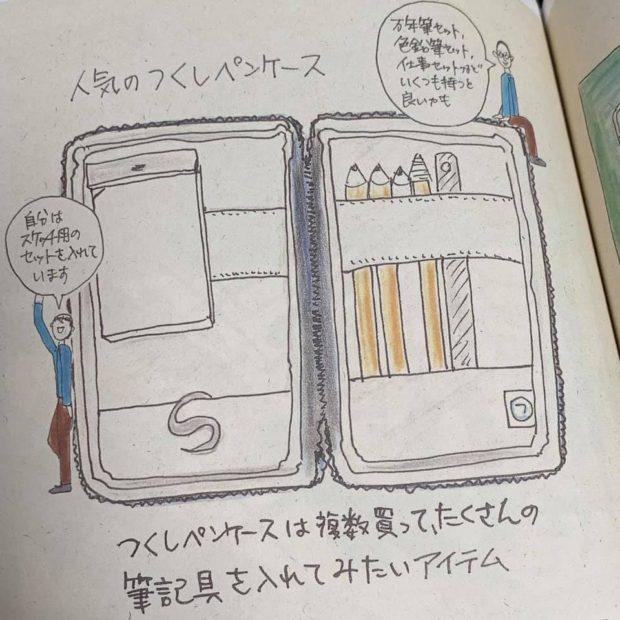 人気のつくしペンケース
万年筆セット、
色鉛筆セット、
仕事セットなど
いくつも持つと
良いかも
自分は
スケッチ用の
セットを入れて
います
つ
つくしペンケースは複数買って、たくさんの
筆記具を入れてみたいアイテム